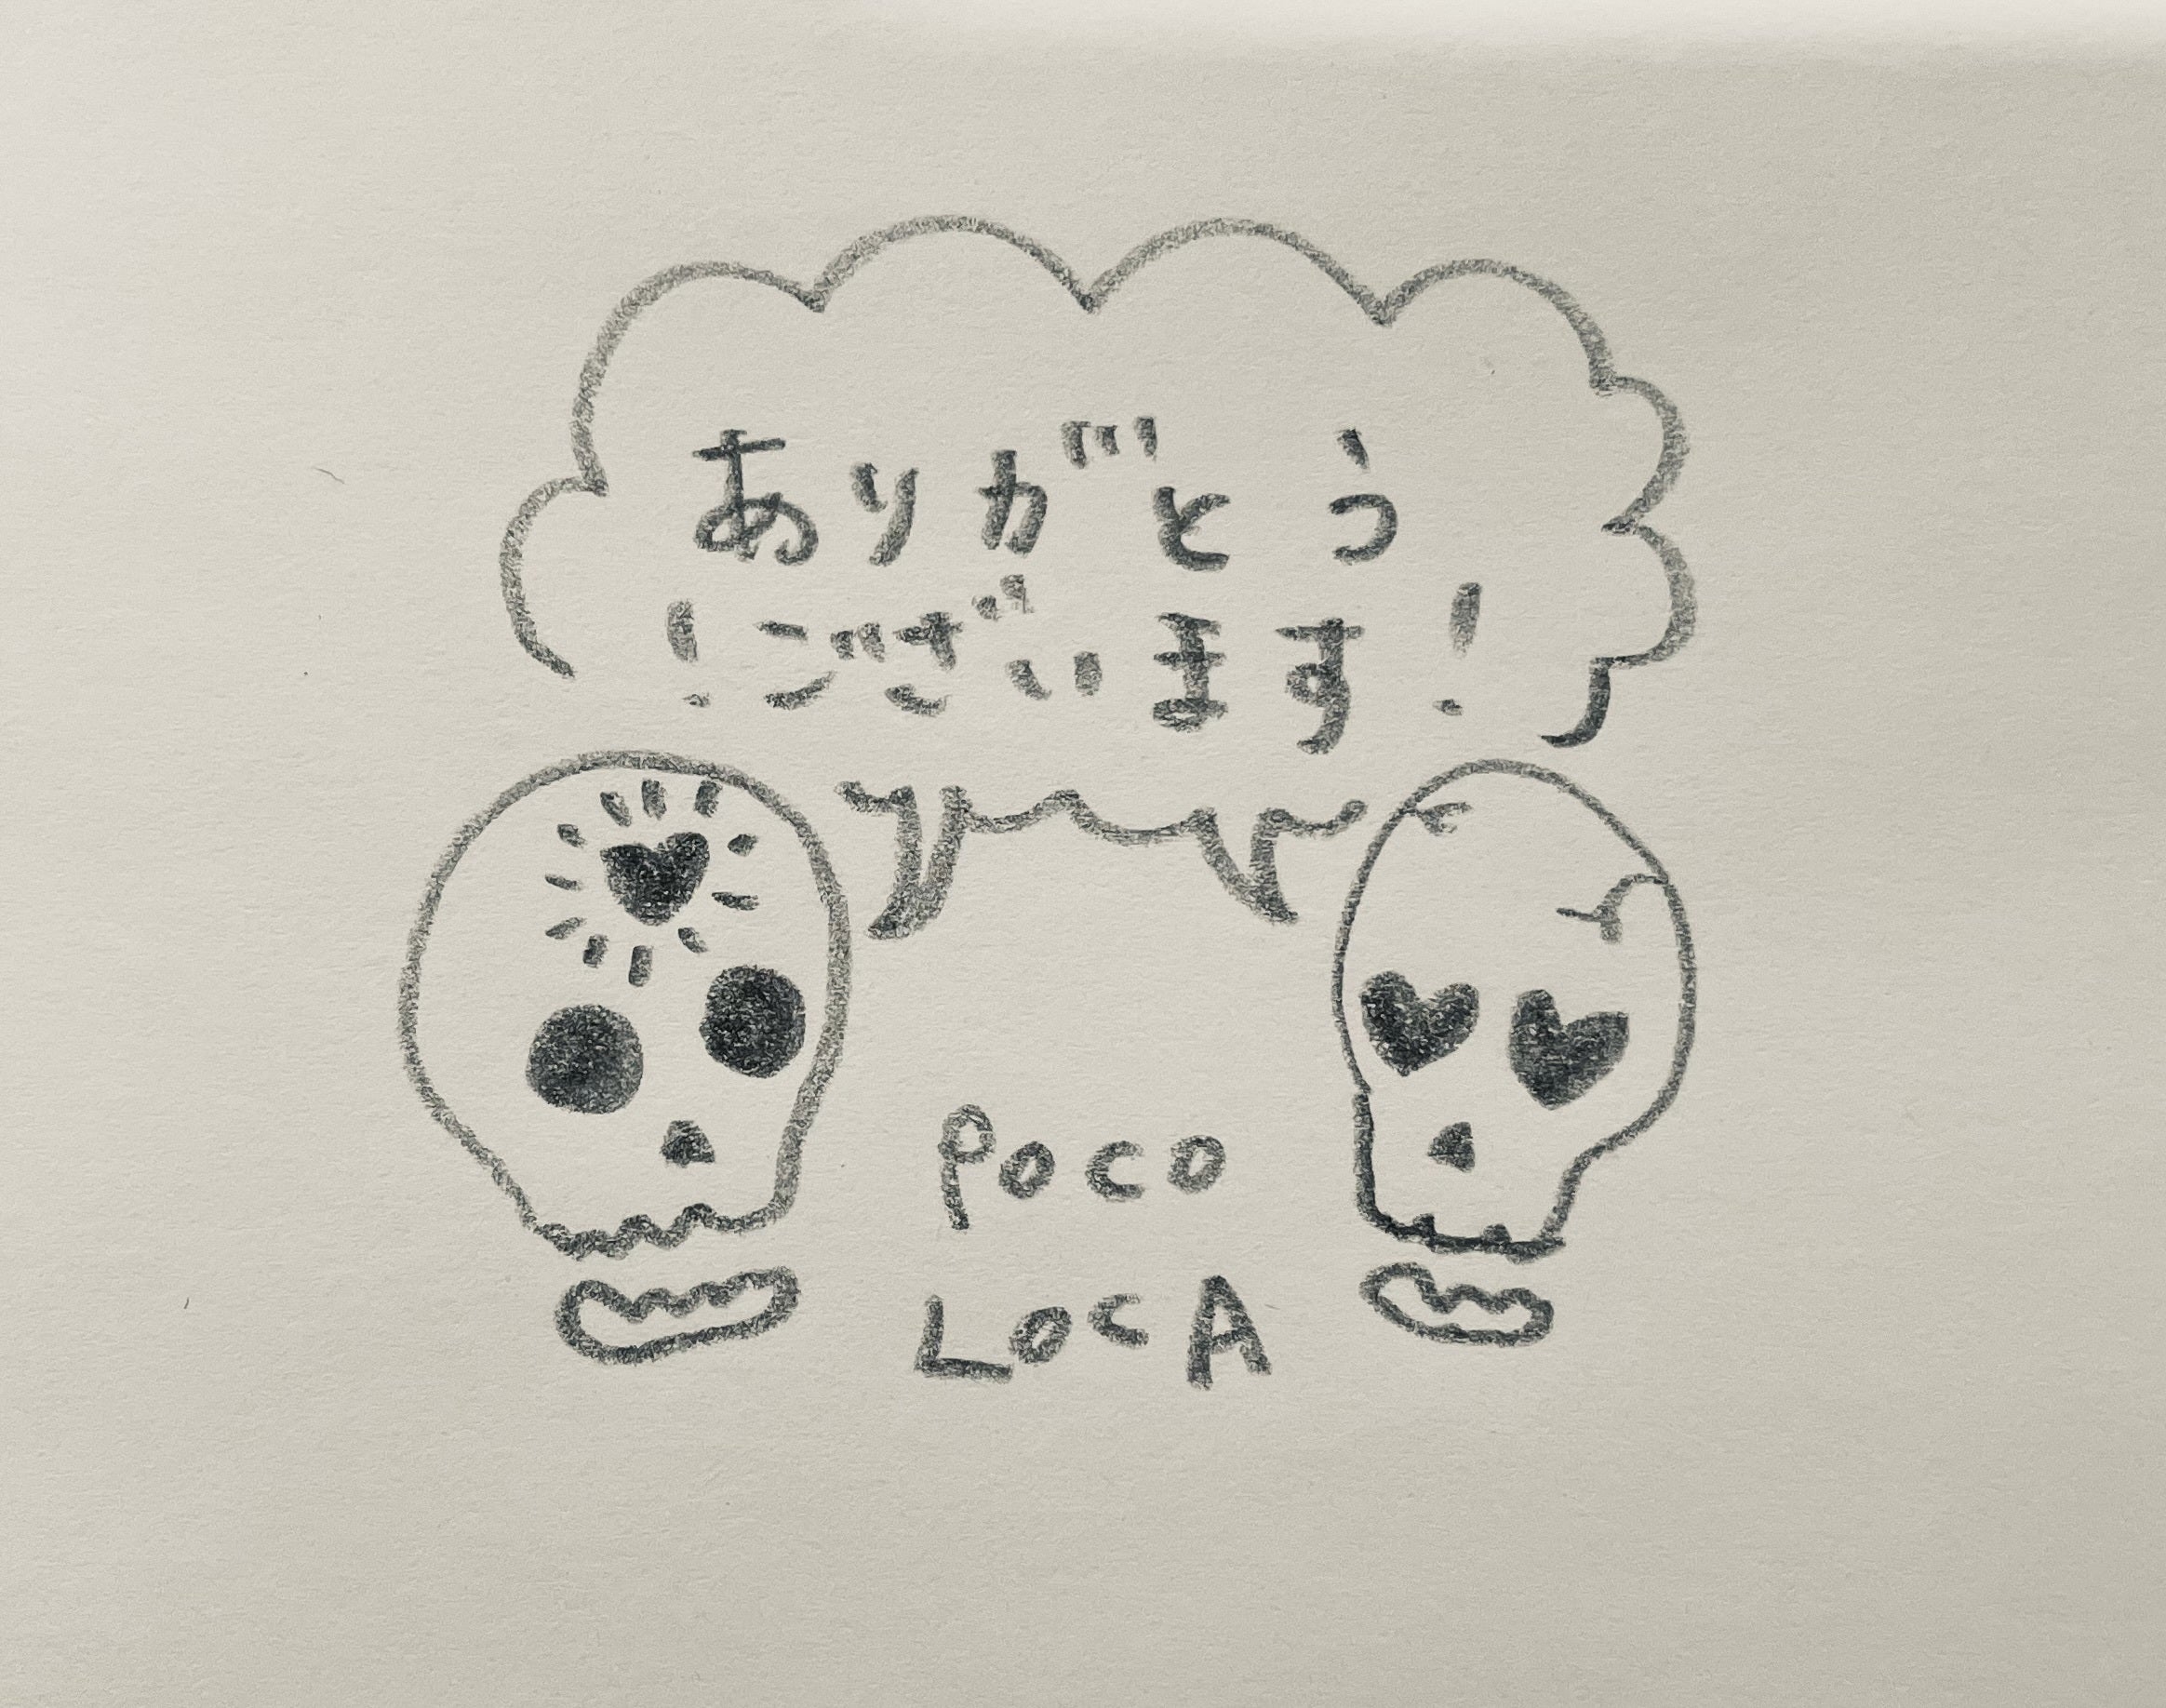 ありがとう
!ございます!
POCO
LOCA